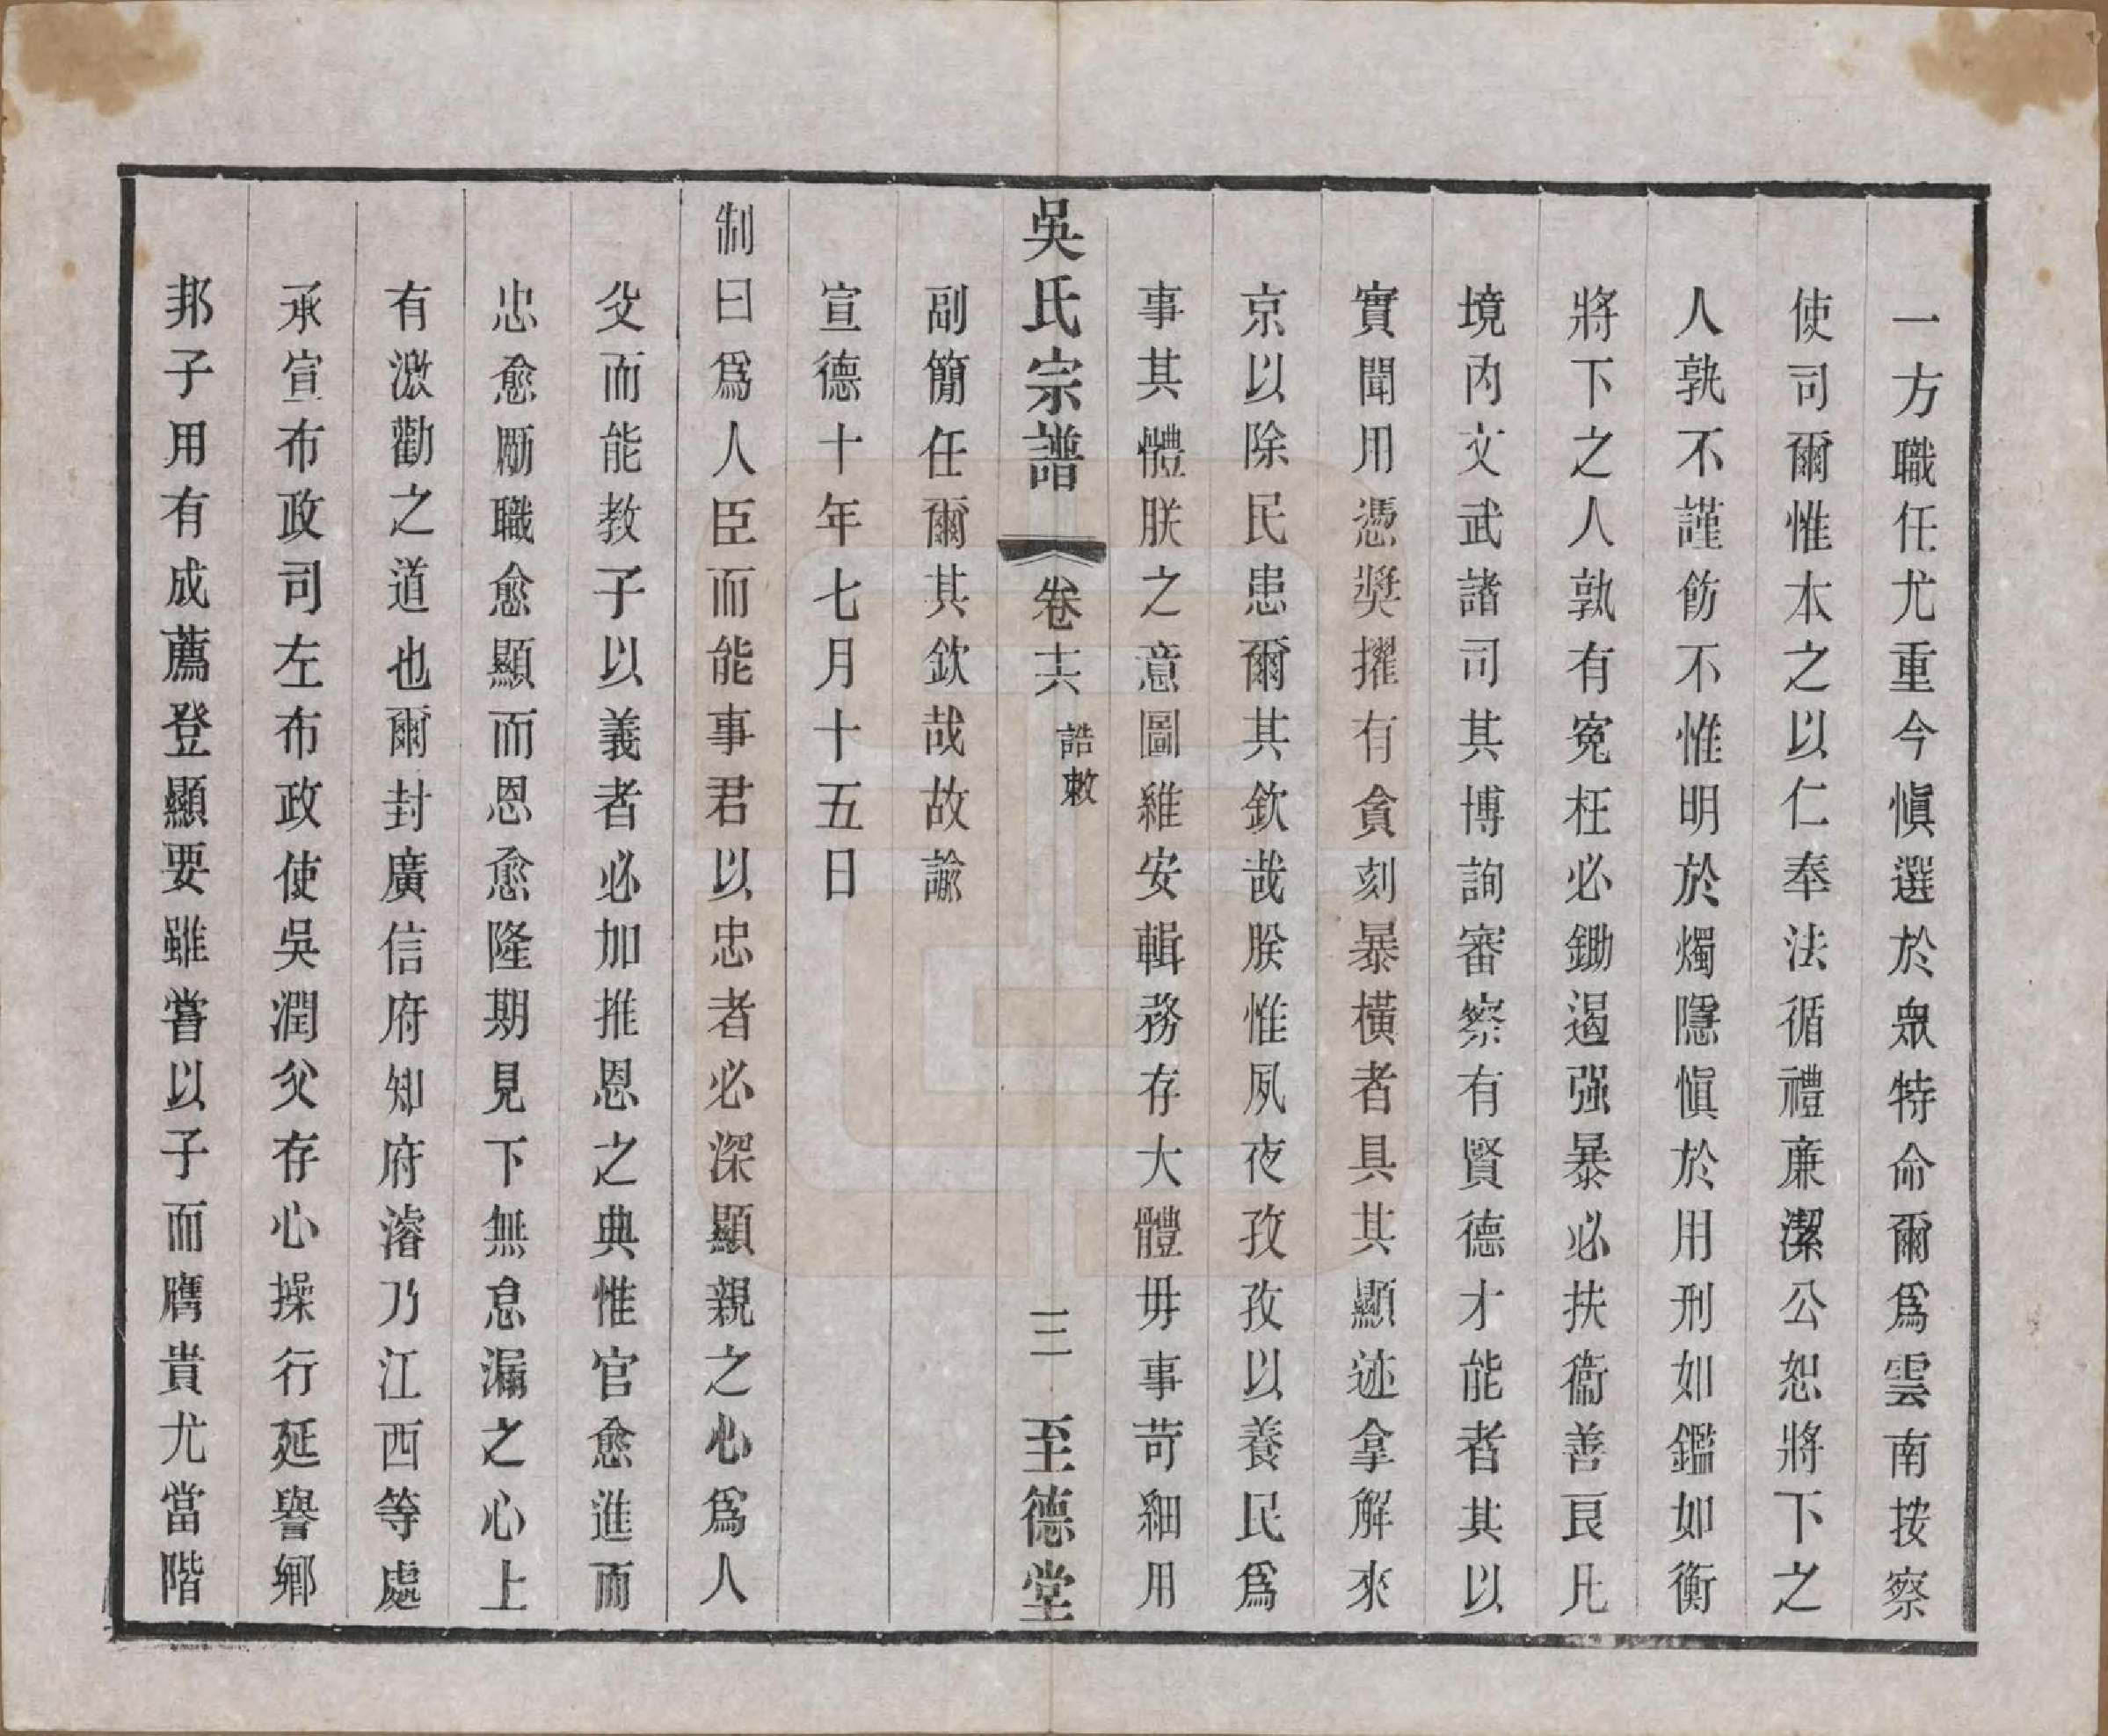 一方職任尤重今愼選於衆特命爾爲雲南按察
使司爾惟本之以仁奉法循禮廉潔公恕將下之
人孰不謹飭不惟明於燭隱愼於用刑如鑑如衡
將下之人孰有寃枉必鋤遏强暴必扶衞善良凡
境內文武諸司其博詢審察有賢德才能者其以
實聞用憑奬擢有貪刻暴橫者具其顯迹拿解來
京以除民患爾其欽哉朕惟夙夜孜孜以養民爲
事其體朕之意圖維安輯務存大體毋事苛細用
吳氏宗譜 卷十六 誥敕 三 至德堂
副簡任爾其欽哉故諭
宣德十年七月十五日
制曰爲人臣而能事君以忠者必深顯親之心爲人
父而能教子以義者必加推恩之典惟官愈進而
忠愈勵職愈顯而恩愈隆期見下無怠漏之心上
有激勸之道也爾封廣信府知府濬乃江西等處
承宣布政司左布政使吳潤父存心操行延譽鄉
邦子用有成薦登顯要雖嘗以子而膺貴尤當階